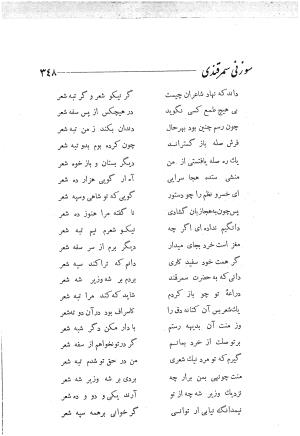 سوزنی سمرقندی ۳۴۸
داند که نهاد شاعران چیست گر نیکو شعر و گر تبه شعر
بی هیچ طمع کسی نگوید در هیچکس از پس سفه شعر
چون رسم چنین بود بهرحال دندان بکند ز من تبه شعر
فرش سله باز گسترانند چون کرده بوم بدو تبه شعر
یك ره سله یافتستی از من دیگر بستان و باز خود شعر
منشی سنده هجا سرایی آه ار گویی هزار ده شعر
ای خسرو نظم را چو دستور گویی که تو شاهی وسپه شعر
پس چون به هجا زبان گشادی نا گفته مرا هنوز ده شعر
دانگیم نداده ای اگر چه نیکو شعرم نیم تبه شعر
مغز است خرد بجای میدار دیگر برم از سر سفه شعر
گر همت خود سفید کاری دانم که تراکند سیه شعر
دانی که به حضرت سمرقند بردم بر شه وزیر شه شعر
دراعهٔ تو چو باز کردم شاید که کند مرا تبه شعر
یك شعر بس آن کتانه دق را کاسراف بود در آن دو ته شعر
وز منت آن بدیهه رستم با دار مکن دگر شبه شعر
بر تو صلت از خرد بمانم گر در تو نخواهم از سفه شعر
گیرم که تو مرد نیك شعری من در حق تو شدم تبه شعر
منت چونهی بمن برار چه بردی بر شه وزیر شه شعر
نزدیك وزیر شه ز هر کس آرند یکی و دو و ده شعر
نیمدانگه نیابی ار توانی گر خوانی بر همه سپه شعر